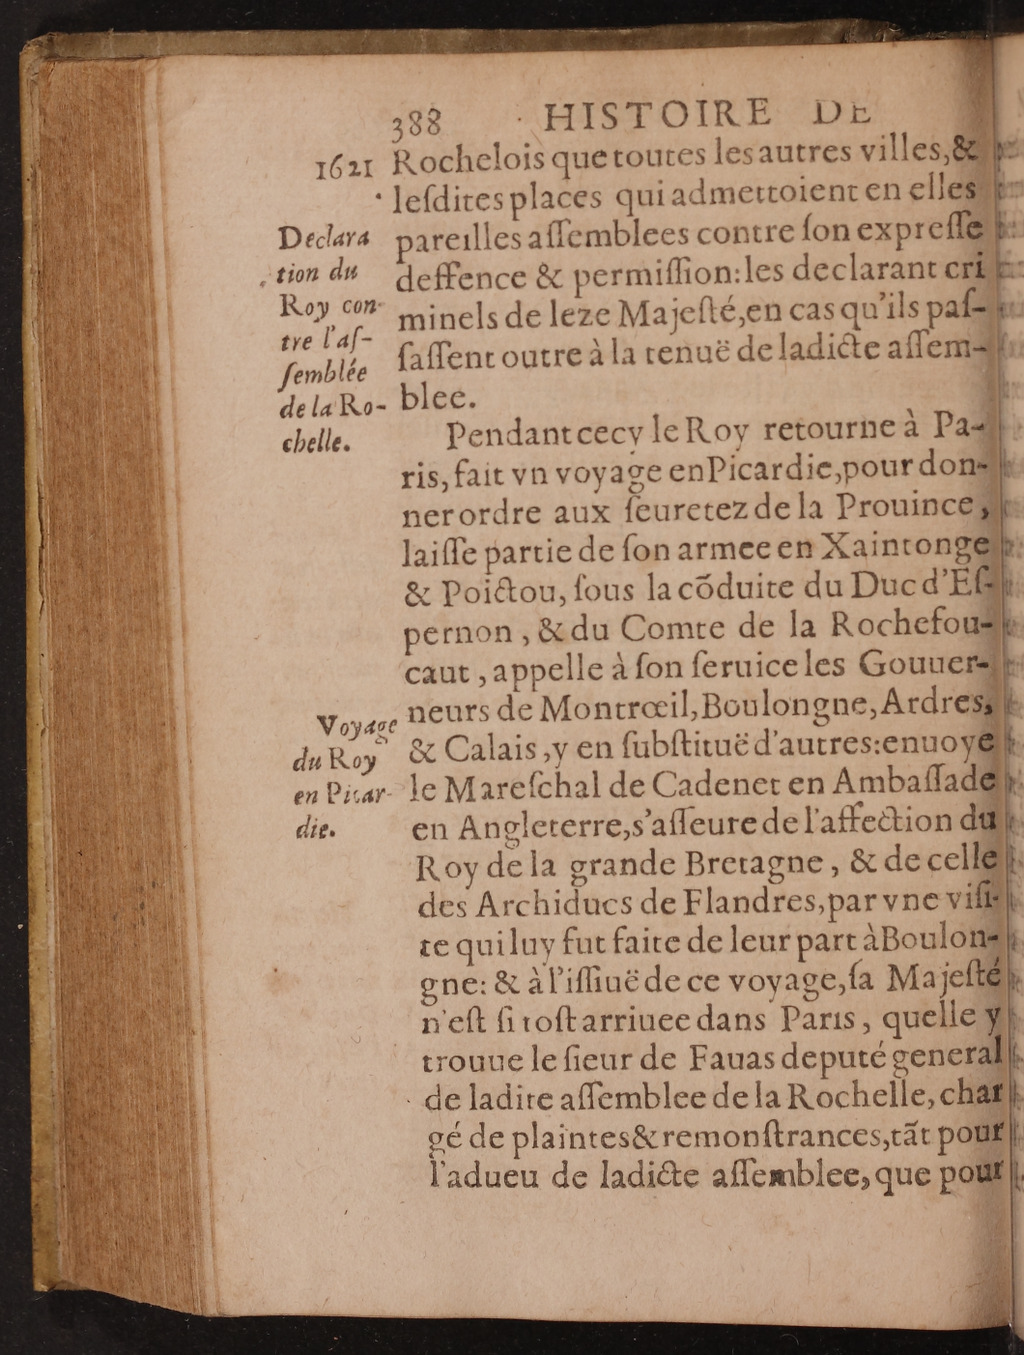 388 HISTOIRE DE
1621 Rochelois que toutes les autres villes, &
leſdites places qui admettoient en elles
pareilles aſſemblees contre ſon expreſſe
deffence & permiſſion: les declarant cri
minels de leze Majeſté, en cas qu'ils paſ-
ſaſſent outre à la tenuë de ladicte aſſem-
blee.
Declara
tion du
Roy con-
tre l'aſ-
ſemblée
de la Ro-
chelle.
Pendant cecy le Roy retourne à Pa-
ris, fait vn voyage en Picardie, pour don-
ner ordre aux ſeuretez de la Prouince,
laiſſe partie de ſon armee en Xaintonge
& Poictou, ſous la cõduite du Duc d'Eſ-
pernon, & du Comte de la Rochefou-
caut, appelle à ſon ſeruice les Gouuer-
neurs de Montrœil, Boulongne, Ardres,
& Calais, y en ſubſtituë d'autres: enuoye
le Mareſchal de Cadenet en Ambaſſade
en Angleterre, s'aſſeure de l'affection du
Roy de la grande Bretagne, & de celle
des Archiducs de Flandres, par vne viſi-
te qui luy fut faite de leur part à Boulon-
gne: & à l'iſſiuë de ce voyage, ſa Majeſté
n'eſt ſi toſt arriuee dans Paris, quelle y
trouue le ſieur de Fauas deputé general
de ladite aſſemblee de la Rochelle, char
gé de plaintes & remonſtrances, tãt pour
l'adueu de ladicte aſſemblee, que pour
Voyage
du Roy
en Picar-
die.